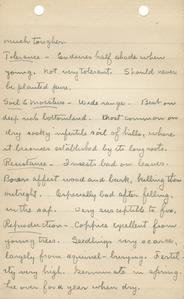 much tougher.
Tolerance - Endures half shade when
young, not very tolerant. Should never
be planted pure.
Soil & Moisture - Wide range. Best on
deep rich bottomland. Most common on
dry rocky infertile soil of hills, where
it becomes established by its long roots.
Resistance - Insects bad on leaves.
Borers affect wood and bark, killing them
outright. Especially bad after felling,
in the sap. Very susceptible to fire.
Reproduction - Coppice excellent from
young trees. Seedlings very scarce,
largely from squirrel-burying. Fertil-
ity very high. Germinate in spring,
lie over for a year when dry.